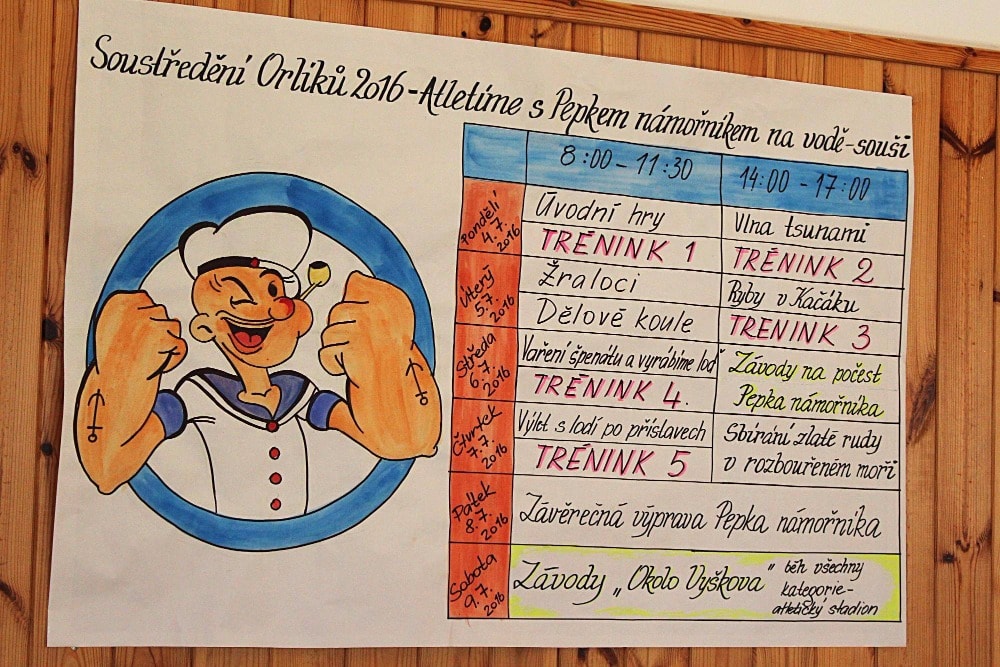 Soustředění Orlíků 2016-Atletíme s Pepkem námořníkem na vodě-souši
8:00-11:30
14:00-17:00
Pondělí
4.7.
2016
Úvodní hry
TRÉNINK 1
Vlna tsunami
TRÉNINK 2
Úterý
5.7.
2016
Žraloci
Dělové koule
Ryby v Kačáku
TRÉNINK 3
Středa
6.7.
2016
Vaření špenátu a vyrábíme loď
TRÉNINK 4.
Závody na počest
Pepka námořníka
Čtvrtek
7.7.
2016
Výlet s lodí po příslavech
TRÉNINK 5
Sbírání zlaté rudy
v rozbouřeném moři
Pátek
8.7.
2016
Závěrečná výprava Pepka námořníka
Sobota
9.7.
2016
Závody „Okolo Vyškova"
běh všechny
kategorie-
atletický stadion